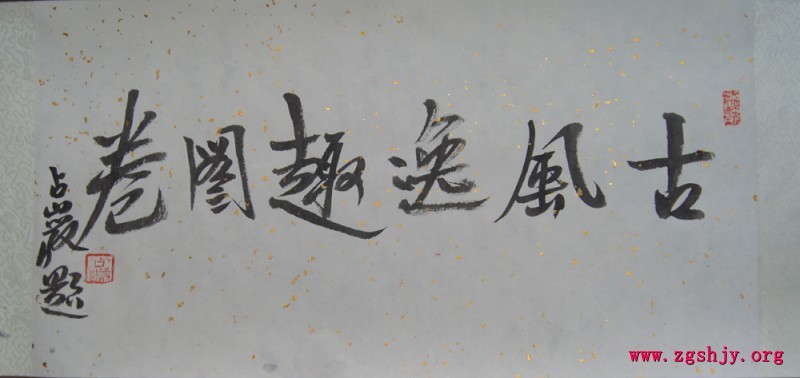 古風逸趣圖卷
占巖題
www.zgshjy.org